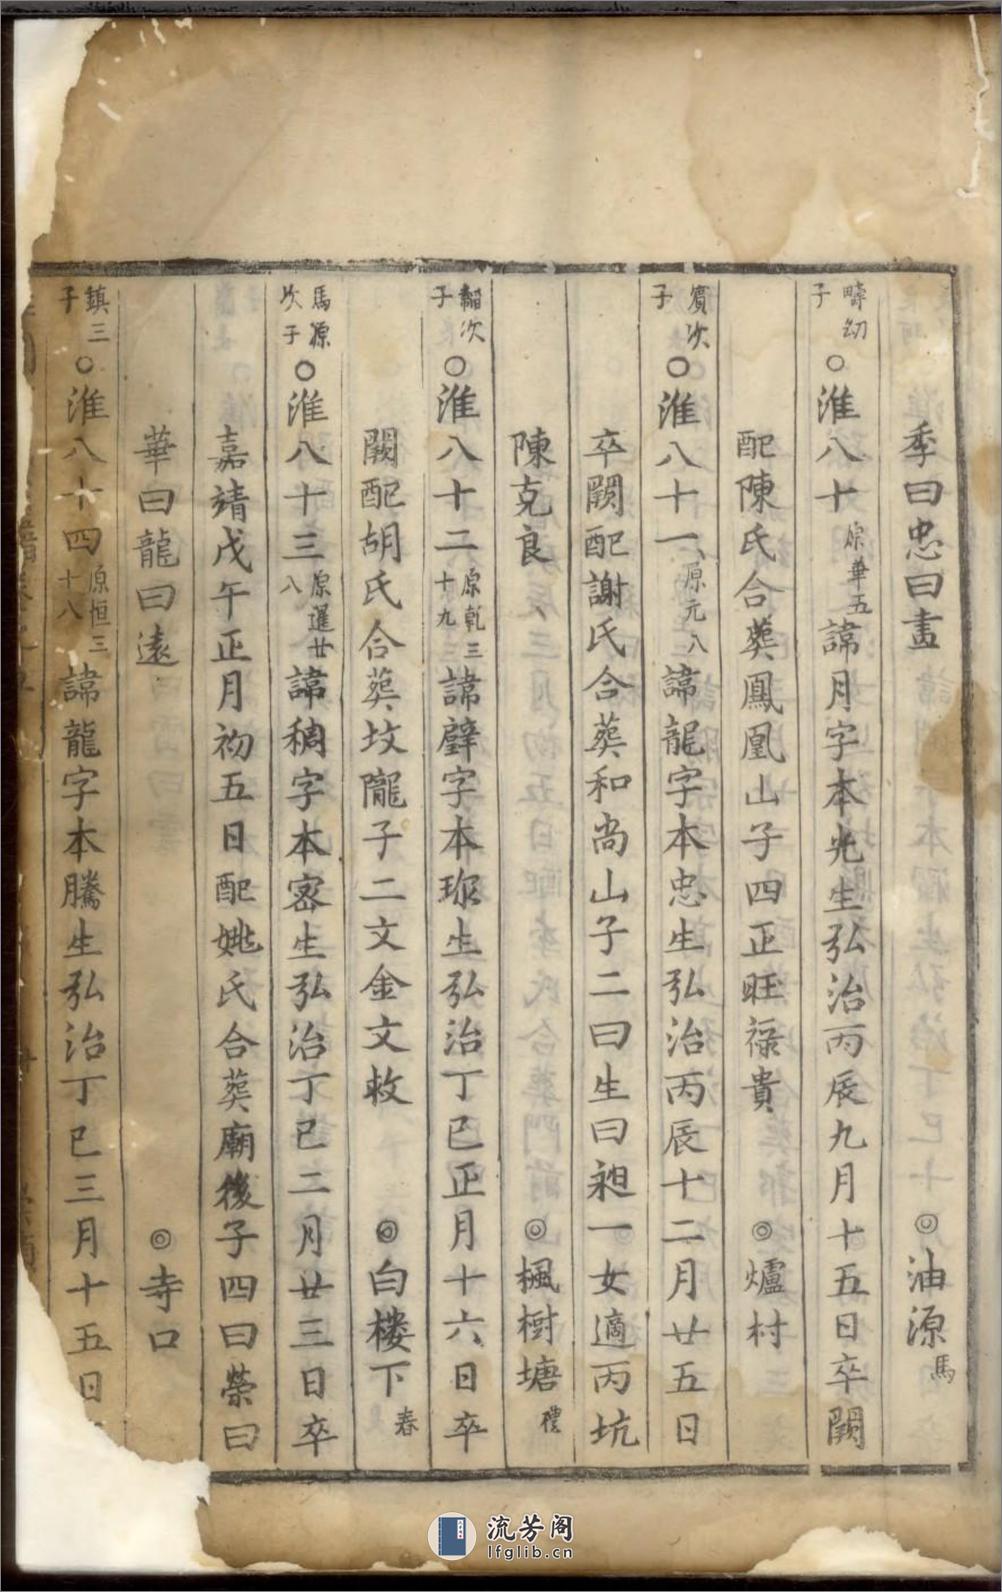 季曰忠曰畫 ◎油源馬
疇幼子○淮八十原華五諱月字本光生弘治丙辰九月十五日卒闕
配陳氏合葬鳳凰山子四正旺祿貴 ◎爐村
賓次子○淮八十一原元八諱龍字本忠生弘治丙辰十二月廿五日
卒闕配謝氏合葬和尚山子二曰生曰昶一女適丙坑
陳克良 ◎楓樹塘禮
韜次子○淮八十二原乾三十九諱璧字本珍生弘治丁巳正月十六日卒
闕配胡氏合葬坟隴子二文金文救 ◎白楼下春
馬源次子○淮八十三原暹廿八諱稠字本密生弘治丁巳二月廿三日卒
嘉靖戊午正月初五日配姚氏合葬廟後子四曰榮曰
華曰龍曰遠 ◎寺口
鎮三子○淮八十四原恒三十八諱龍字本騰生弘治丁巳三月十五日
流芳阁
lfglib.cn